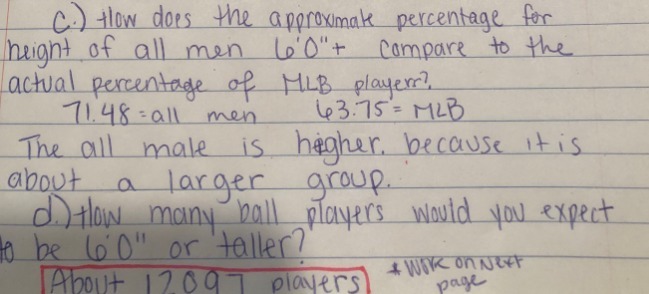 C.) How does the approximate percentage for
height of all men 6'0"+ compare to the
actual percentage of MLB players?
71.48 = all men 63.75 = MLB
The all male is higher. because it is
about a larger group.
d.) How many ball players would you expect
to be 6'0" or taller?
About 12097 players * Work on Next
page